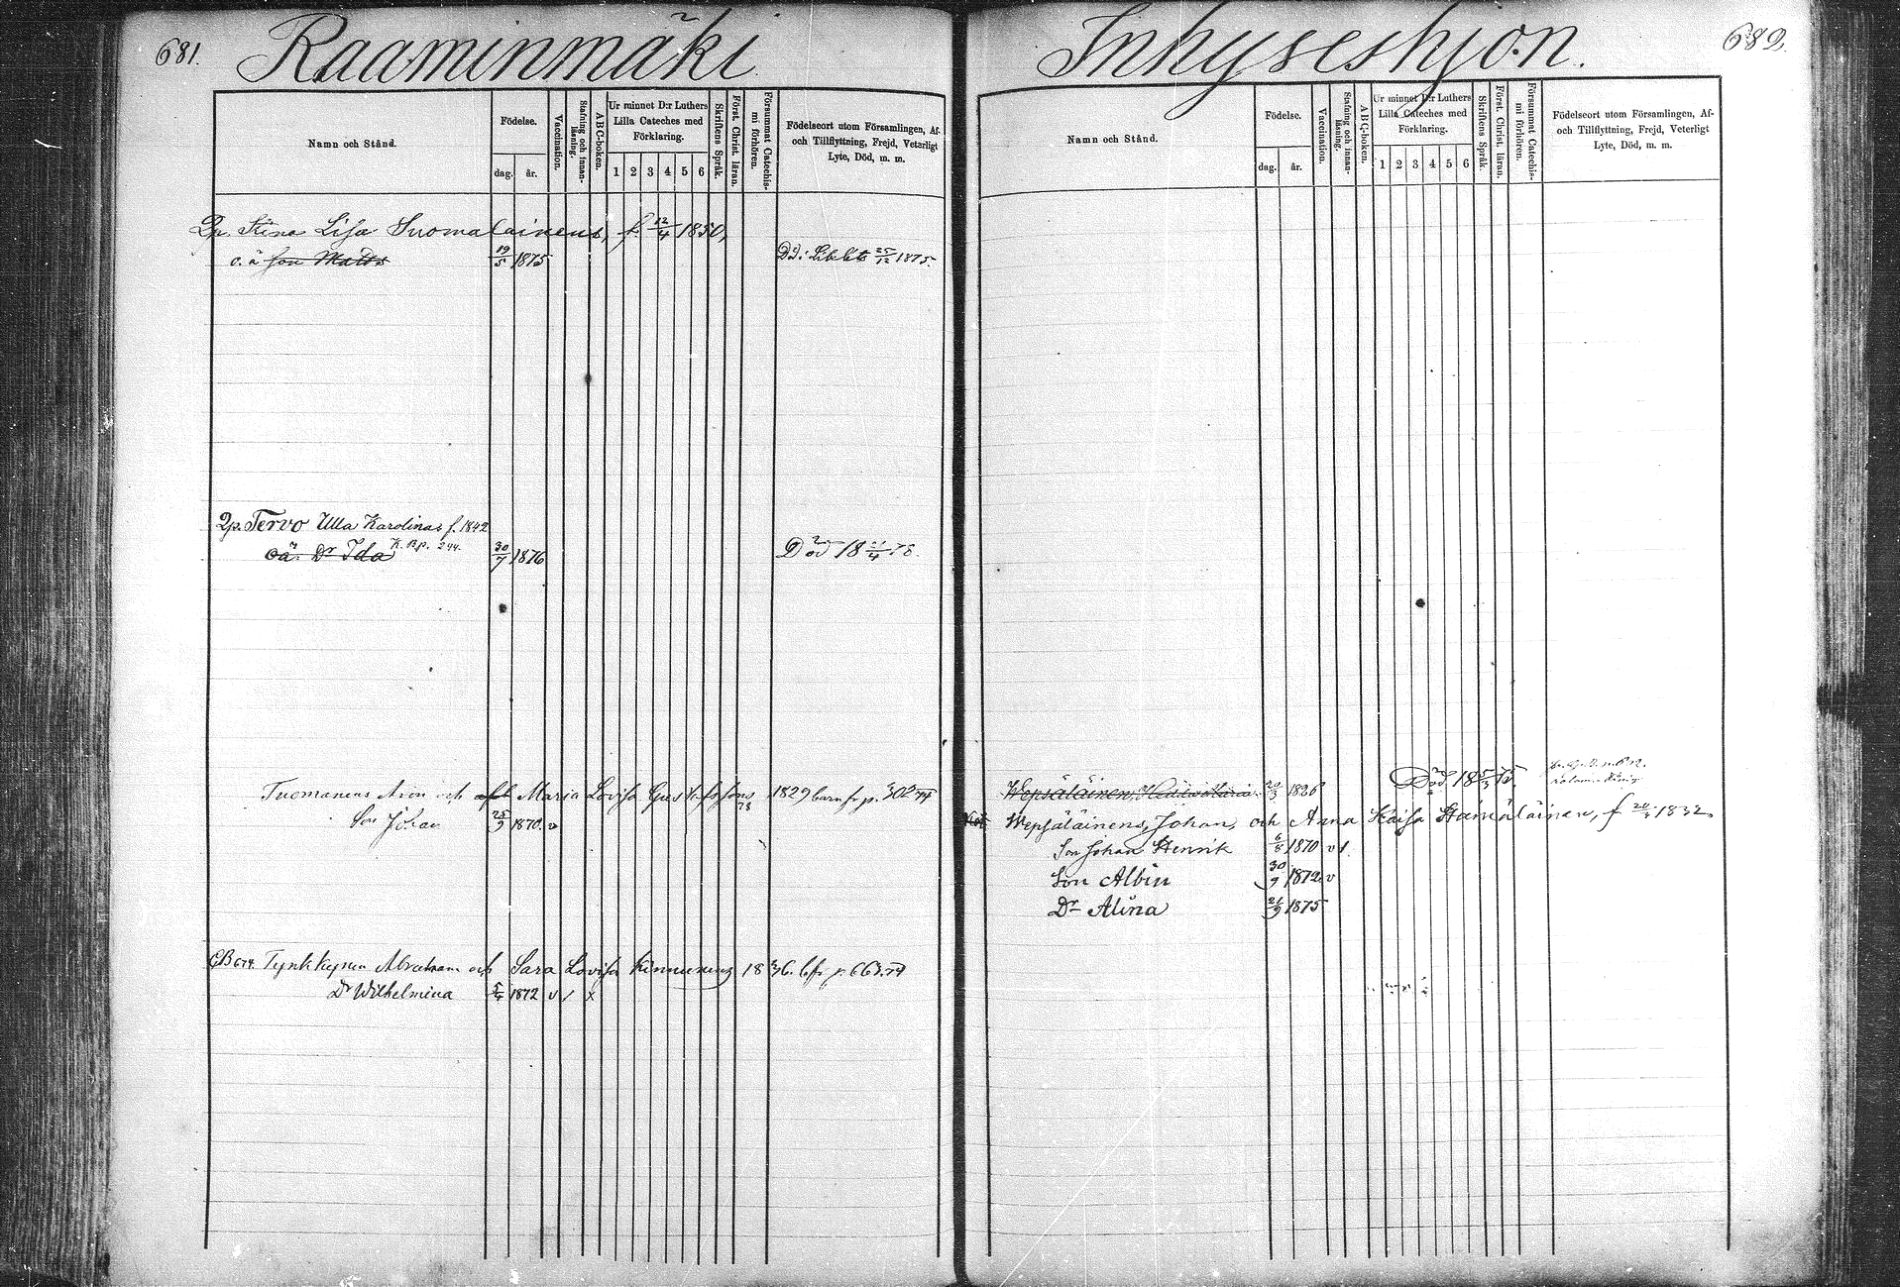 681.
Raaminmäki
Namn och Stånd.
Födelse.
dag.
år.
Vaccination.
Stafning och innan-
läsning.
ABC-boken.
Ur minnet D:r Luthers
Lilla Cateches med
Förklaring.
1 2 3 4 5 6
Skriftens Språk.
Först. Christ. läran.
Försummat Catechis-
mi förhören.
Födelseort utom Församlingen, Af-
och Tillflyttning, Frejd, Veterligt
Lyte, Död, m. m.
Qp. Stina Lisa Suomalainens, f. 12/4 1850,
o. ä son Matts 19/5 1875 25/12 1875.
Qp. Tervo Ulla Karolinas f. 1842
oä. Dr Ida K.Bp. 244. 30/7 1876 Död 18 /4 78.
Tuomanens Aron och Maria Lovisa 1829 barnfr p. 302
Son Johan 23/9 1870. v
674. Tynkkynen Abraham och Sara Lovisa Kinnunens 1836. bfr p. 663.
Dr Wilhelmina 5/4 1872 v / x
682.
Inhyseshjon.
Namn och Stånd.
Födelse.
dag.
år.
Vaccination.
Stafning och innan-
läsning.
ABC-boken.
Ur minnet D:r Luthers
Lilla Cateches med
Förklaring.
1 2 3 4 5 6
Skriftens Språk.
Först. Christ. läran.
Försummat Catechis-
mi förhören.
Födelseort utom Församlingen, Af-
och Tillflyttning, Frejd, Veterligt
Lyte, Död, m. m.
Wepsäläinen, Hedvig Maria 1826 Död 18 5/3 75.
Wepsäläinens, Johan, och Anna Kaisa Hämäläinen, f 1832.
Son Johan Henrik 6/8 1870 v 1.
Son Albin 30/9 1872 v
Dr Alina 21/9 1875